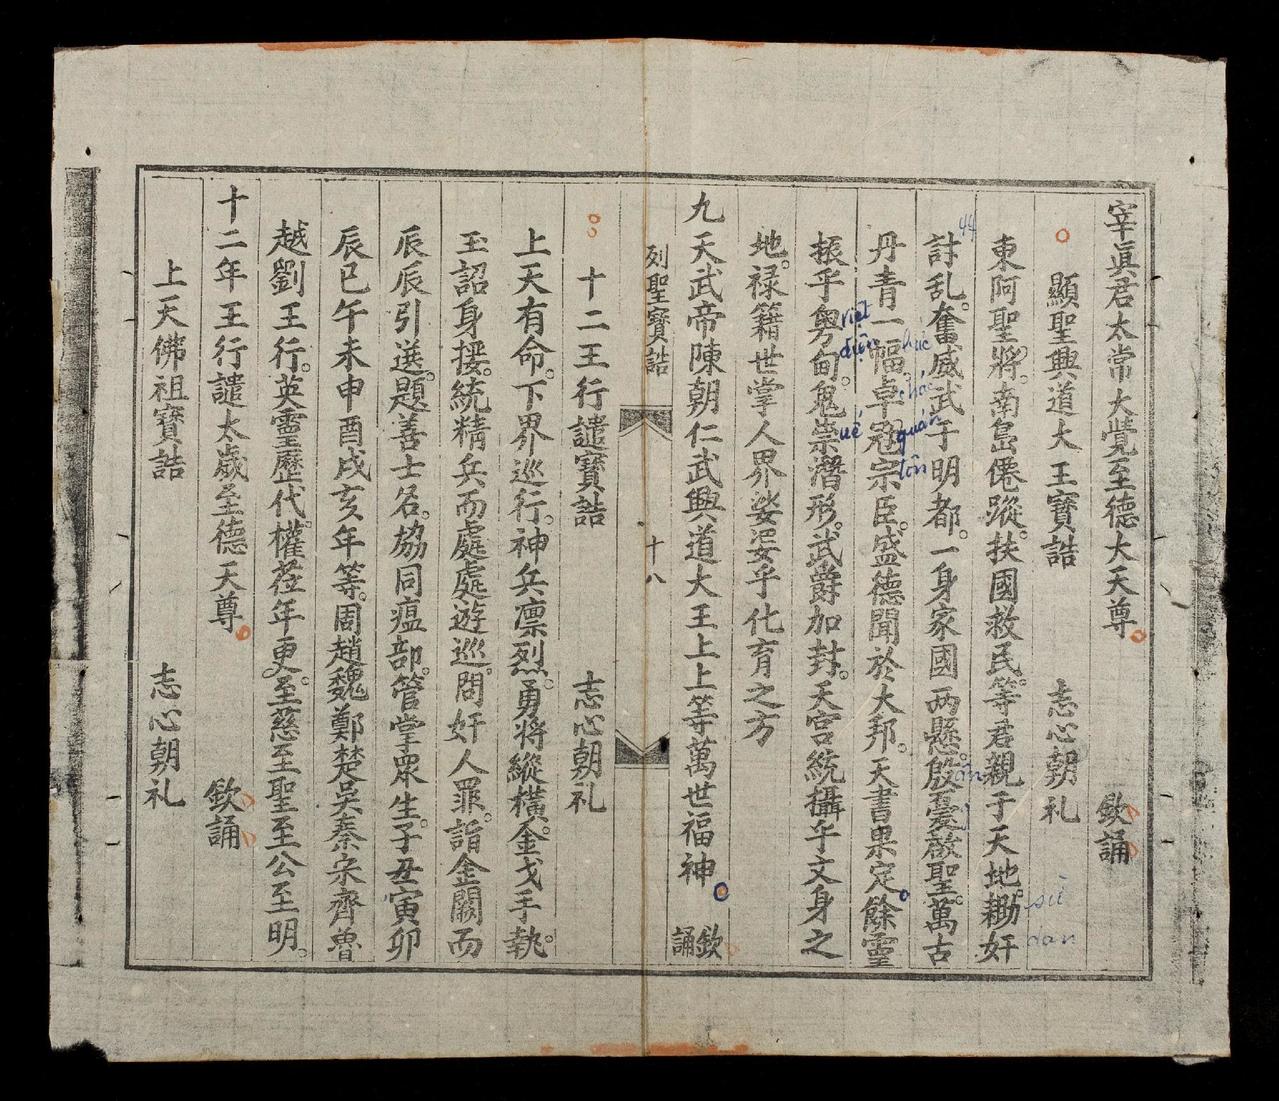 宰眞君太常大覺至德大天尊 欽誦
顯聖興道大王寶誥 志心朝礼
東阿聖將。南島僊蹤。扶國救民。等君親于天地。耡奸
討乱。奮威武于明都。一身家國兩懸。殷憂啟聖。萬古
丹青一幅。卓冠宗臣。盛德聞於大邦。天書果定。餘靈
振乎粤甸。鬼祟潛形。武爵加封。天宫統攝乎文身之
地。禄籍世掌人界。娑婆乎化育之方
九天武帝陳朝仁武興道大王上上等萬世福神 欽誦
列聖寶誥 十八
十二王行譴寶誥 志心朝礼
上天有命。下界巡行。神兵凛烈。勇将縱横。金戈手執。
玉詔身援。統精兵而處處遊巡。問奸人罪。詣金闕而
辰辰引選。題善士名。協同瘟部。管掌眾生。子丑寅卯
辰巳午未申酉戌亥年等。周趙魏鄭楚吴秦宋齊魯
越劉王行。英靈歷代。權莅年更。至慈至聖至公至明。
十二年王行譴太歲至德天尊 欽誦
上天佛祖寶誥 志心朝礼
44
việt
điện
quán
tôn
uế
ân
sừ
dan